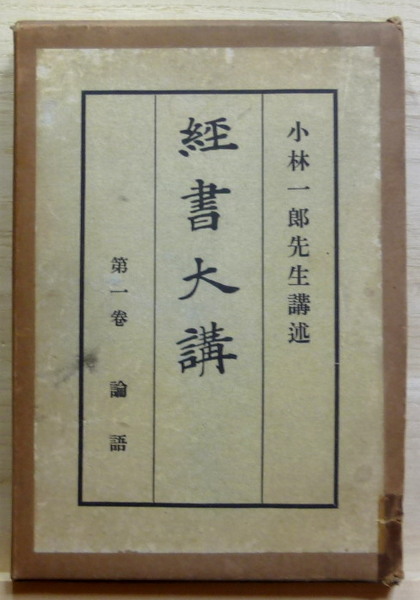 小林一郎先生講述
經書大講
第一卷 論語